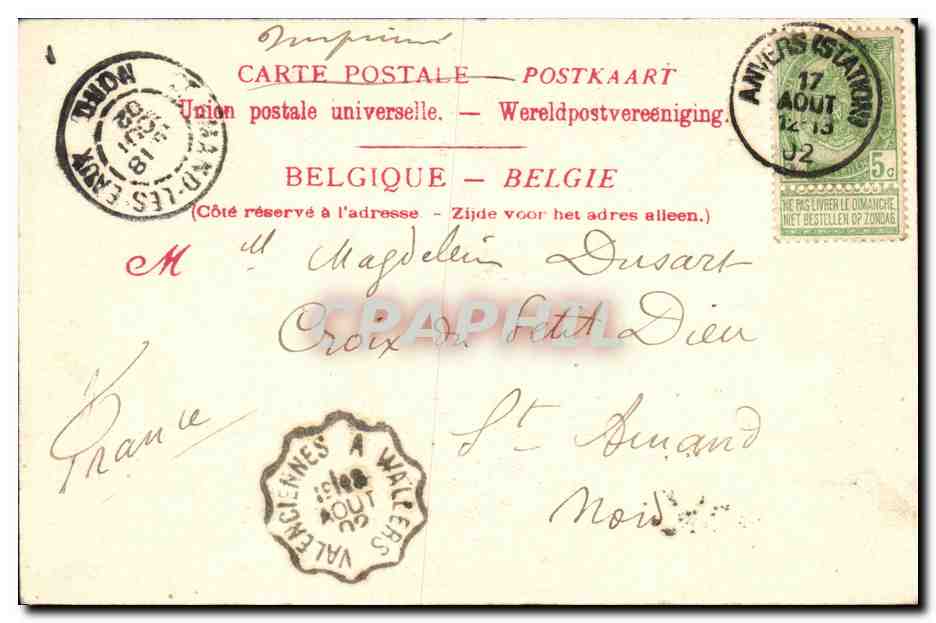 Imprimé
CARTE POSTALE - POSTKAART
Union postale universelle. — Wereldpostvereeniging.
BELGIQUE — BELGIE
(Côté réservé à l'adresse. - Zijde voor het adres alleen.)
M
Magdelein Dusart
Croix du Petit Dieu
St Amand
Nord
France
ANVERS (STATION)
17
AOUT
12-13
02
5c
NE PAS LIVRER LE DIMANCHE
NIET BESTELLEN OP ZONDAG
AMAND-LES-EAUX NORD
18
AOUT
02
VALENCIENNES A WALLERS
18
AOUT
02
CPAPHIL